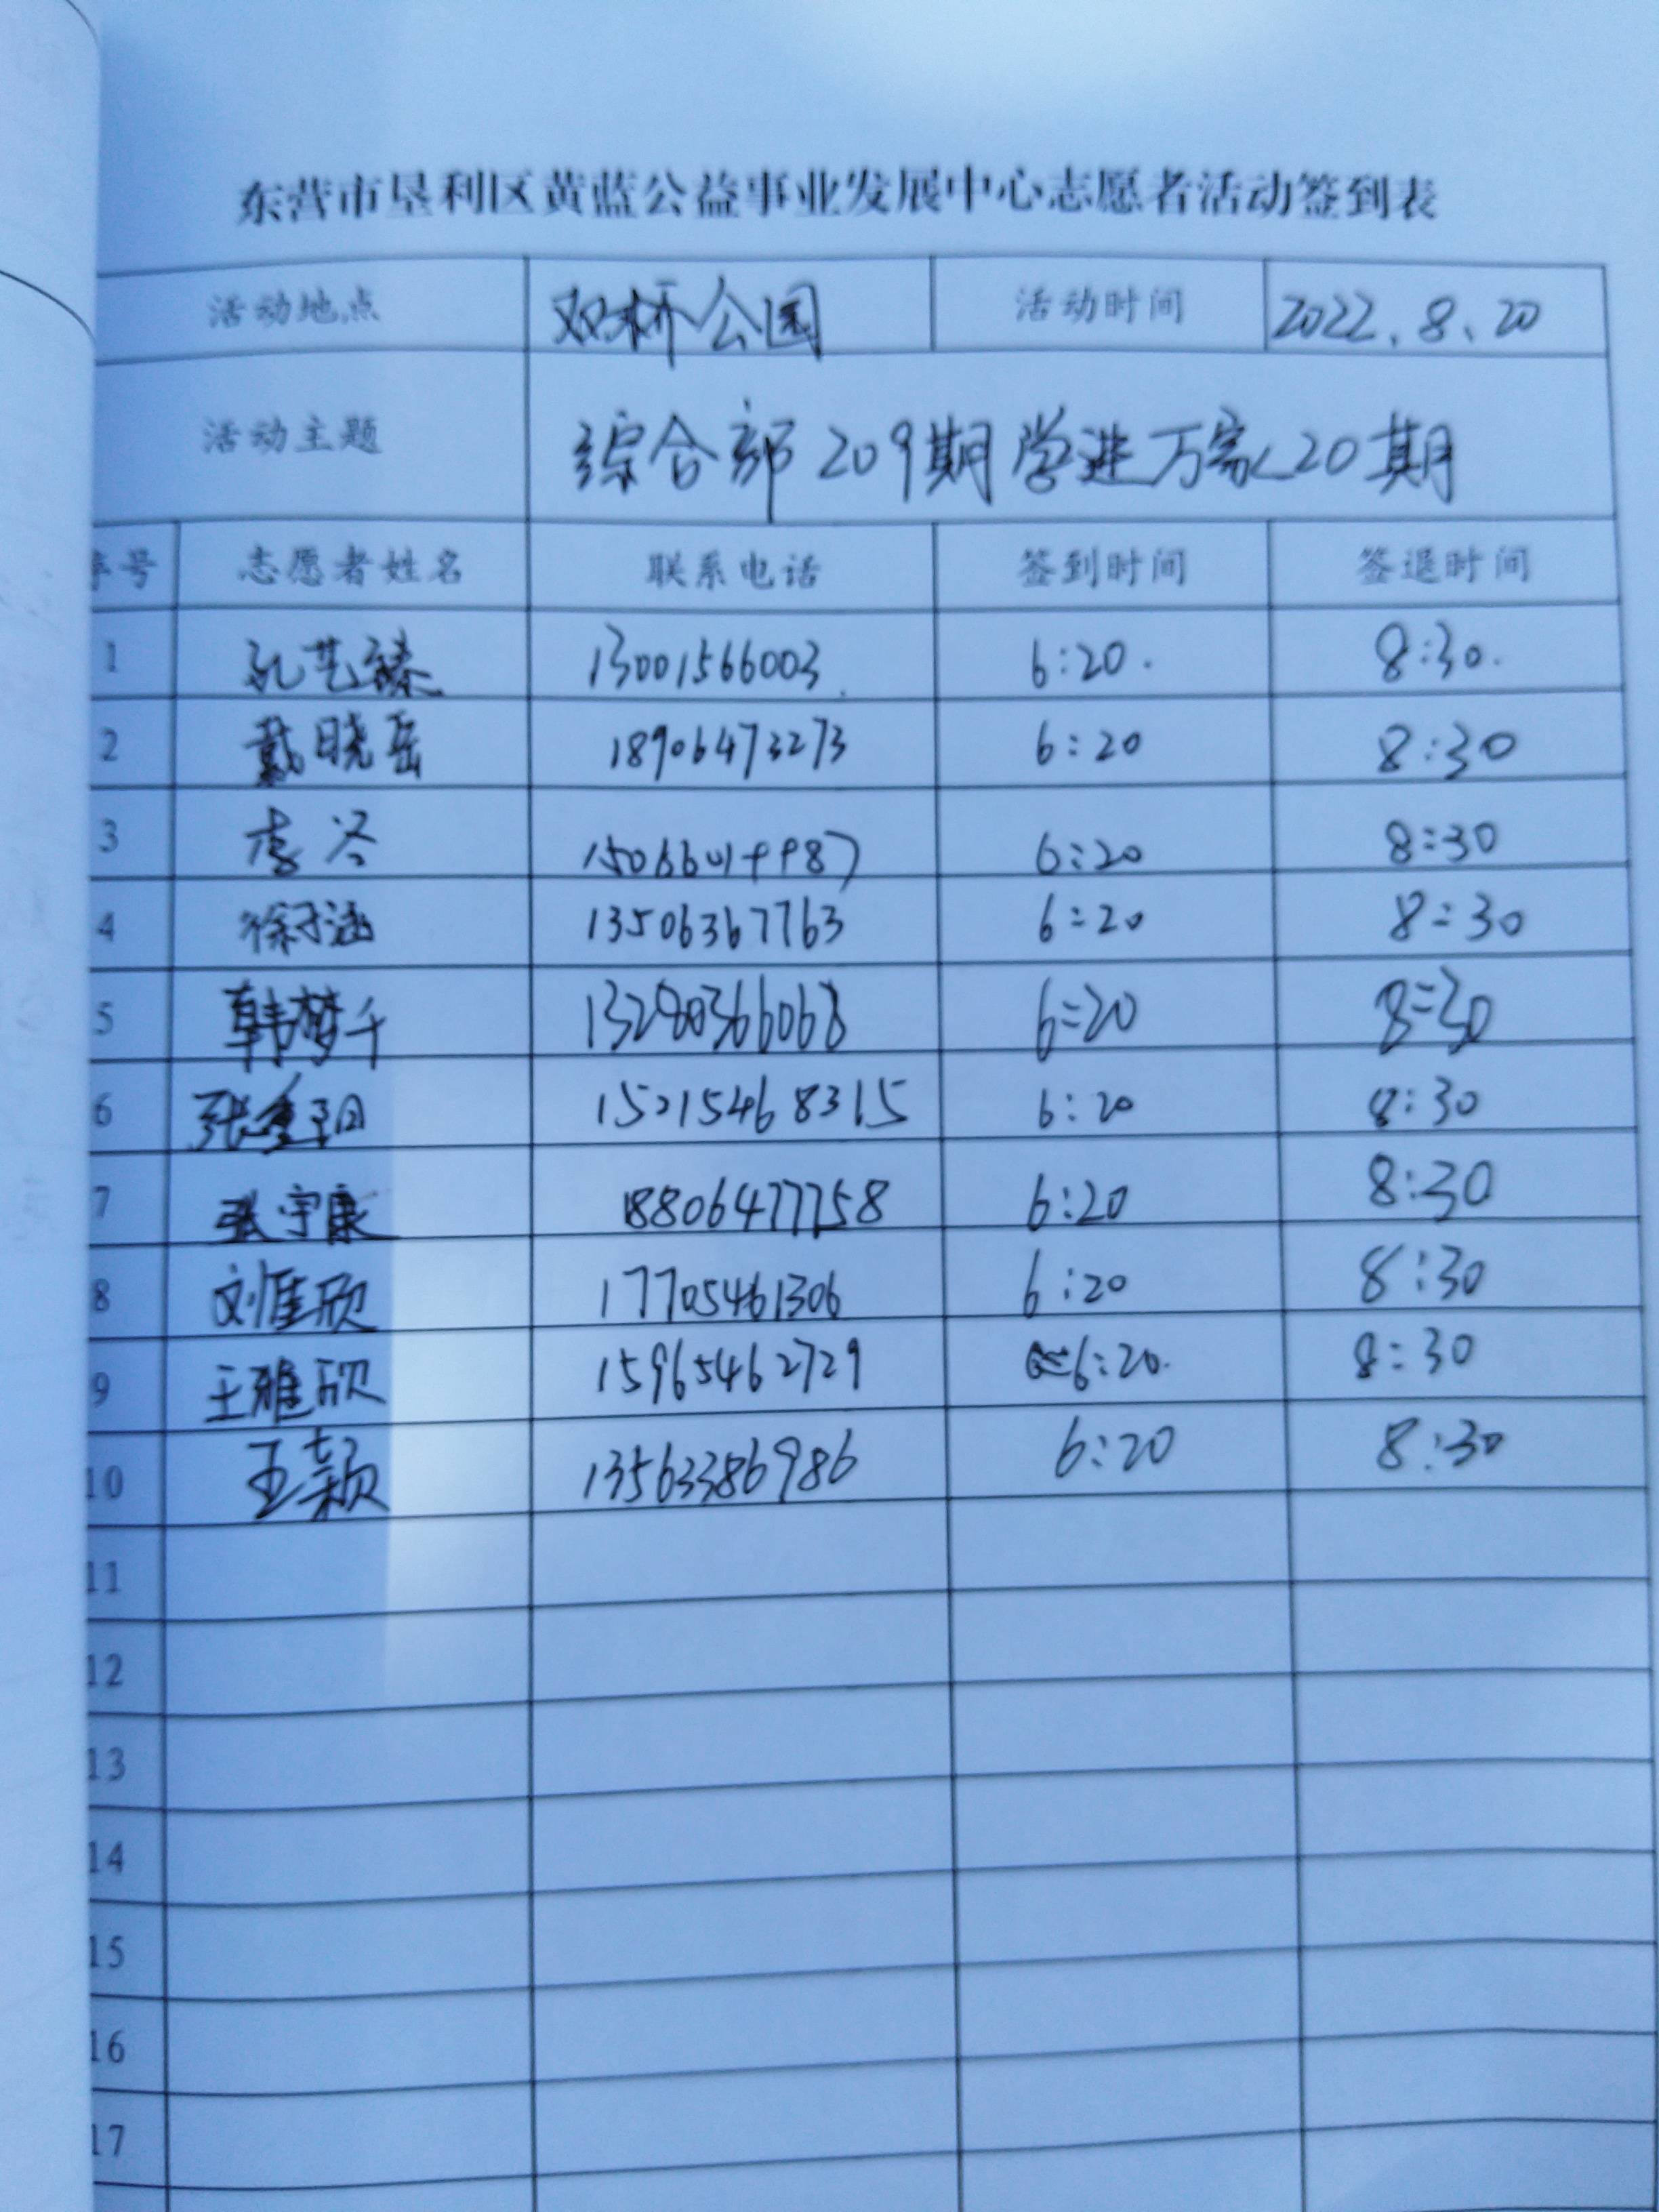 东营市垦利区黄蓝公益事业发展中心志愿者活动签到表
活动地点 双桥公园 活动时间 2022.8.20
活动主题 综合部209期学进万家20期
序号 志愿者姓名 联系电话 签到时间 签退时间
1 孔艺臻 13001566003 6:20. 8:30.
2 戴晓岳 18906473273 6:20 8:30
3 6:20 8:30
4 徐子涵 13506367763 6:20 8:30
5 韩梦千 13280366068 6:20 8:30
6 15215468315 6:20 8:30
7 张宇康 18806477758 6:20 8:30
8 刘佳欣 17705461306 6:20 8:30
9 王雅欣 15965462729 6:20. 8:30
10 王颖 13563386986 6:20 8:30
11
12
13
14
15
16
17